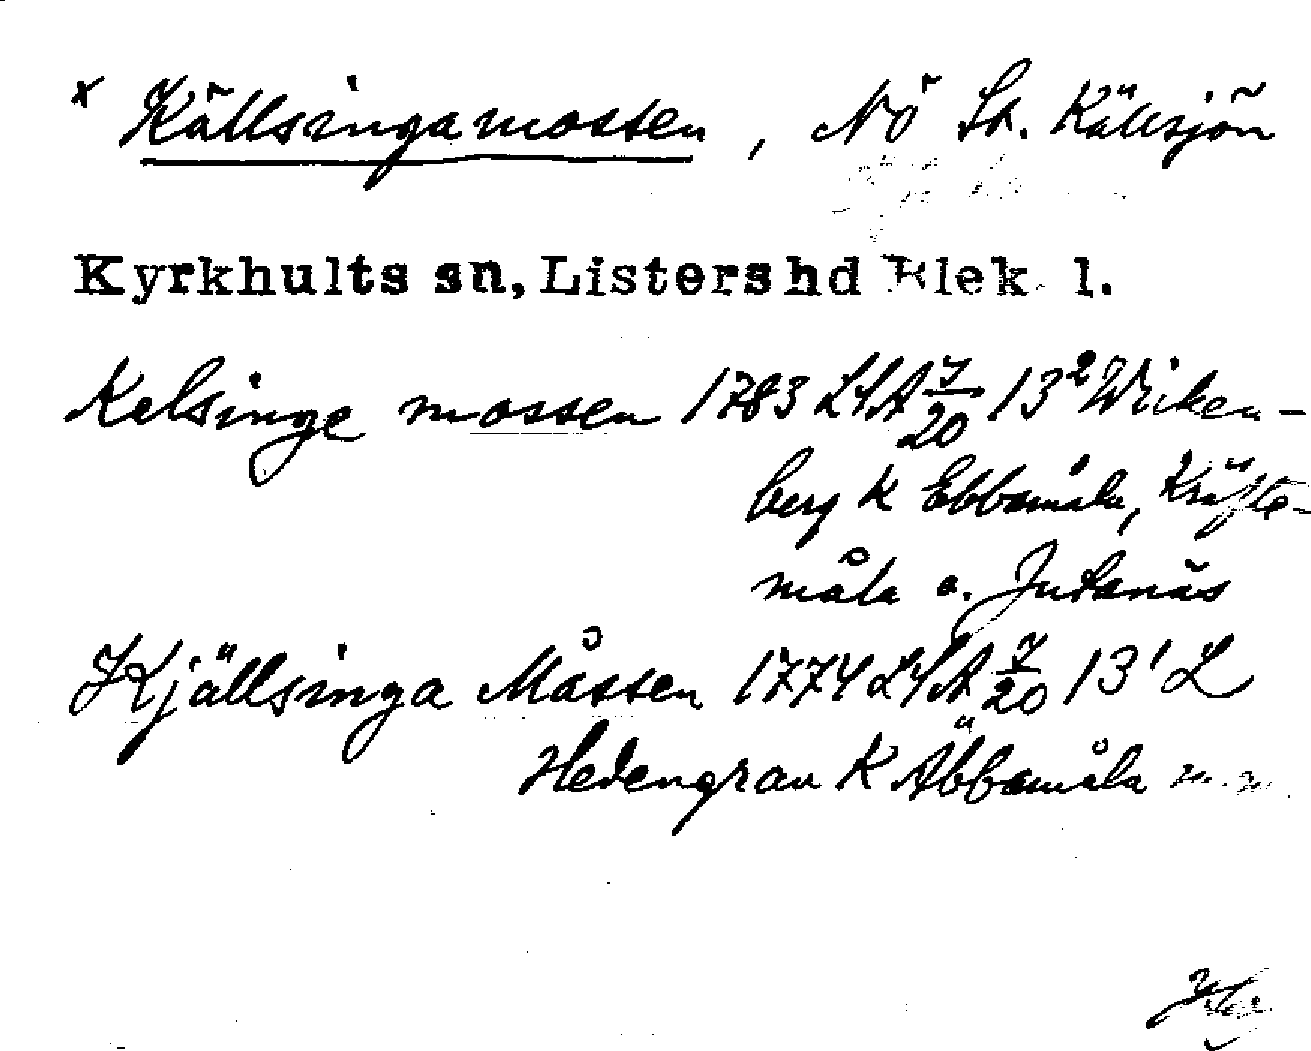 x Källsingamossen, NÖ St. Källsjön
Kyrkhults sn, Listers hd Blek. l.
Kelsinge mossen 1783 LSA 7/20 13² Wicken-
berg K Ebbamåla, Kräfte-
måla o. Judanäs
Kjällsinga Måssen 1774 LSA 7/20 13¹ L
Hedengran K Äbbamåla m.m.